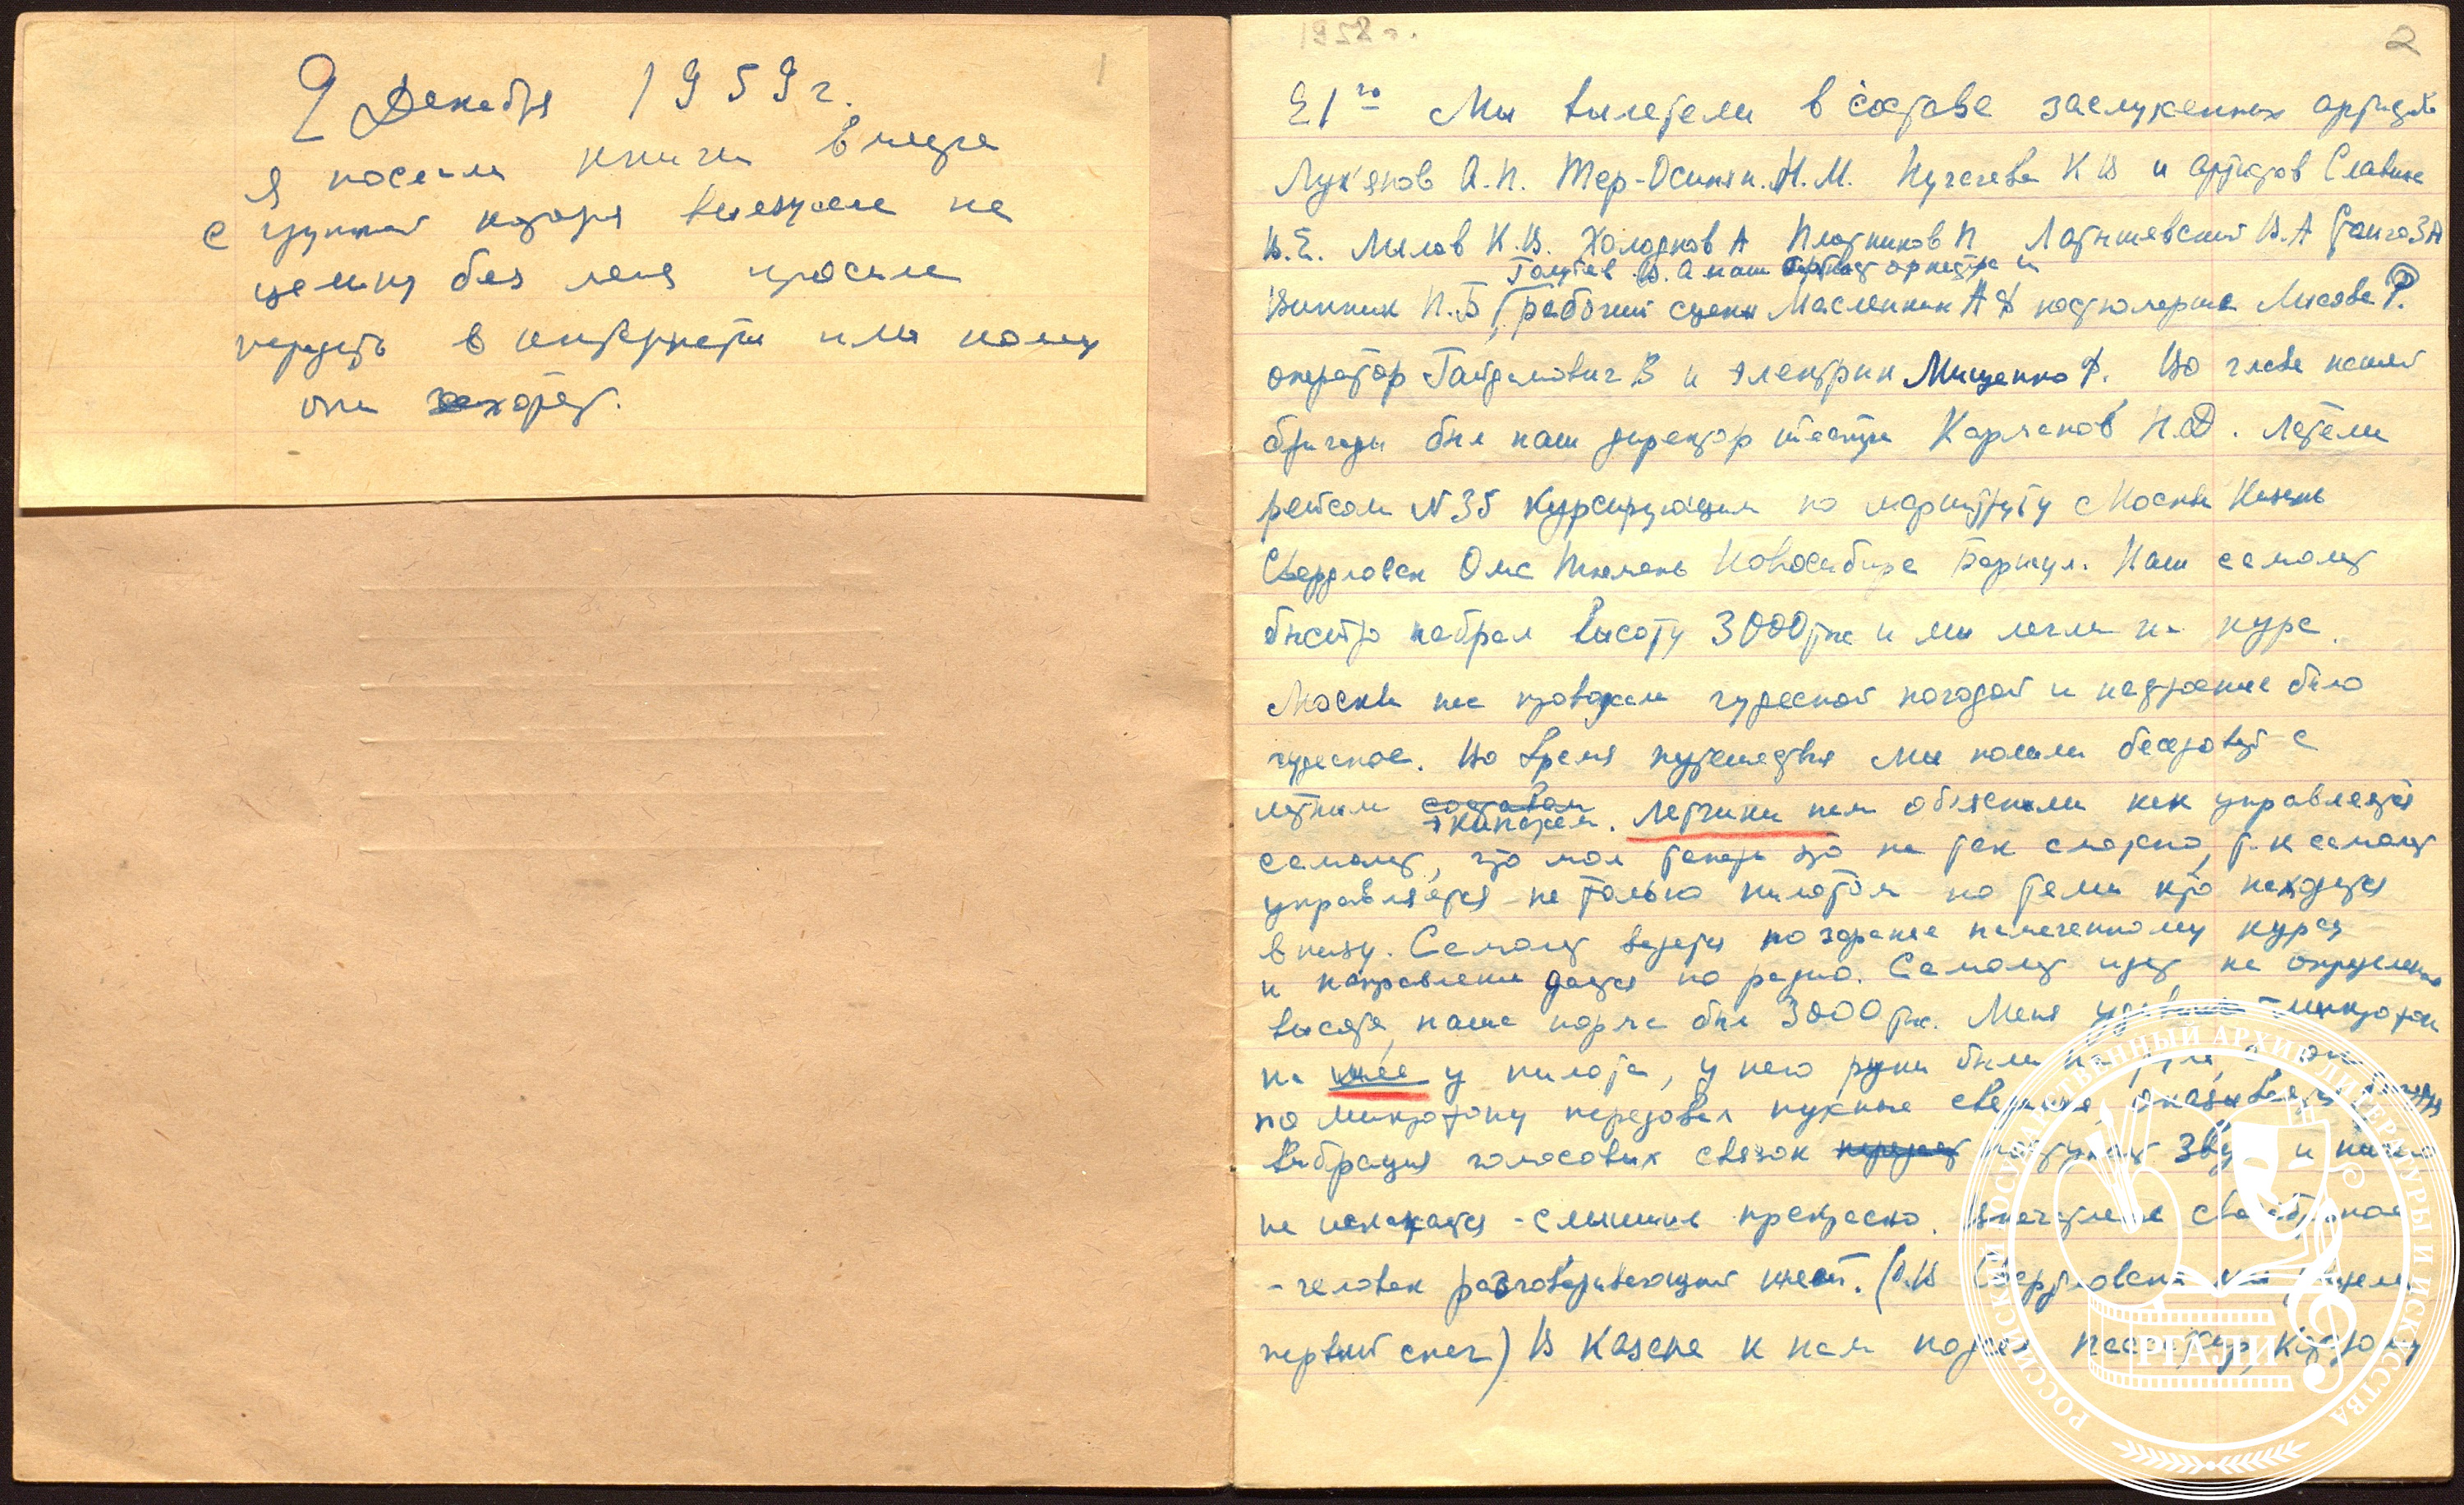 1
9 Декабря 1959 г.
я носила книги
с группой выезжаем на
целину без меня просили
передать в или кому
они хотят.
1958 г.
2
21го Мы вылетели в составе заслуженных артистов
Лукьянов А.П. Тер-Осипян Н.М. Пугачева К В и артистов Славина
В.Е. Милов К.В. Холодков А Плотников Н Латышевский В.А ЗА
Голубев В.А наш оркестра и
Винник П.Б рабочий сцены Масленкин А костюмерша Лисова Р.
оператор В и электрик Мищенко Ф. Во главе нашей
бригады был наш директор театра Карманов Н.Д. Летели
рейсом N 35 курсирующим по маршруту Москва Казань
Свердловск Омс Тюмень Новосибирс Барнаул. Наш самолет
быстро набрал высоту 3000 и мы легли на курс.
Москва нас чудесной погодой и настроение было
чудесное. Во время путешествия мы пошли беседовать с
летным составом
экипажем. Летчики нам объяснили как управляется
самолет, что мол теперь это не так сложно, т.к самолет
управляется не только пилотом но теми кто находится
внизу. Самолет ведется по заранее намеченному курсу
и направление дается по радио. Самолет идет на определенной
высоте, наша норма был 3000 Меня удивил микрофон
на шее у пилота, у него руки были на руле, а он
по микрофону передавал нужные сведения оказывается
вибрация голосовых связок передает звук и
не искажается - слышно прекрасно. впечатление своеобразное
- человек разговаривающий шеей. (В Свердловске мы увидели
первый снег) В Казане к нам подсел пассажир, которому
РОССИЙСКИЙ ГОСУДАРСТВЕННЫЙ АРХИВ ЛИТЕРАТУРЫ И ИСКУССТВА
РГАЛИ